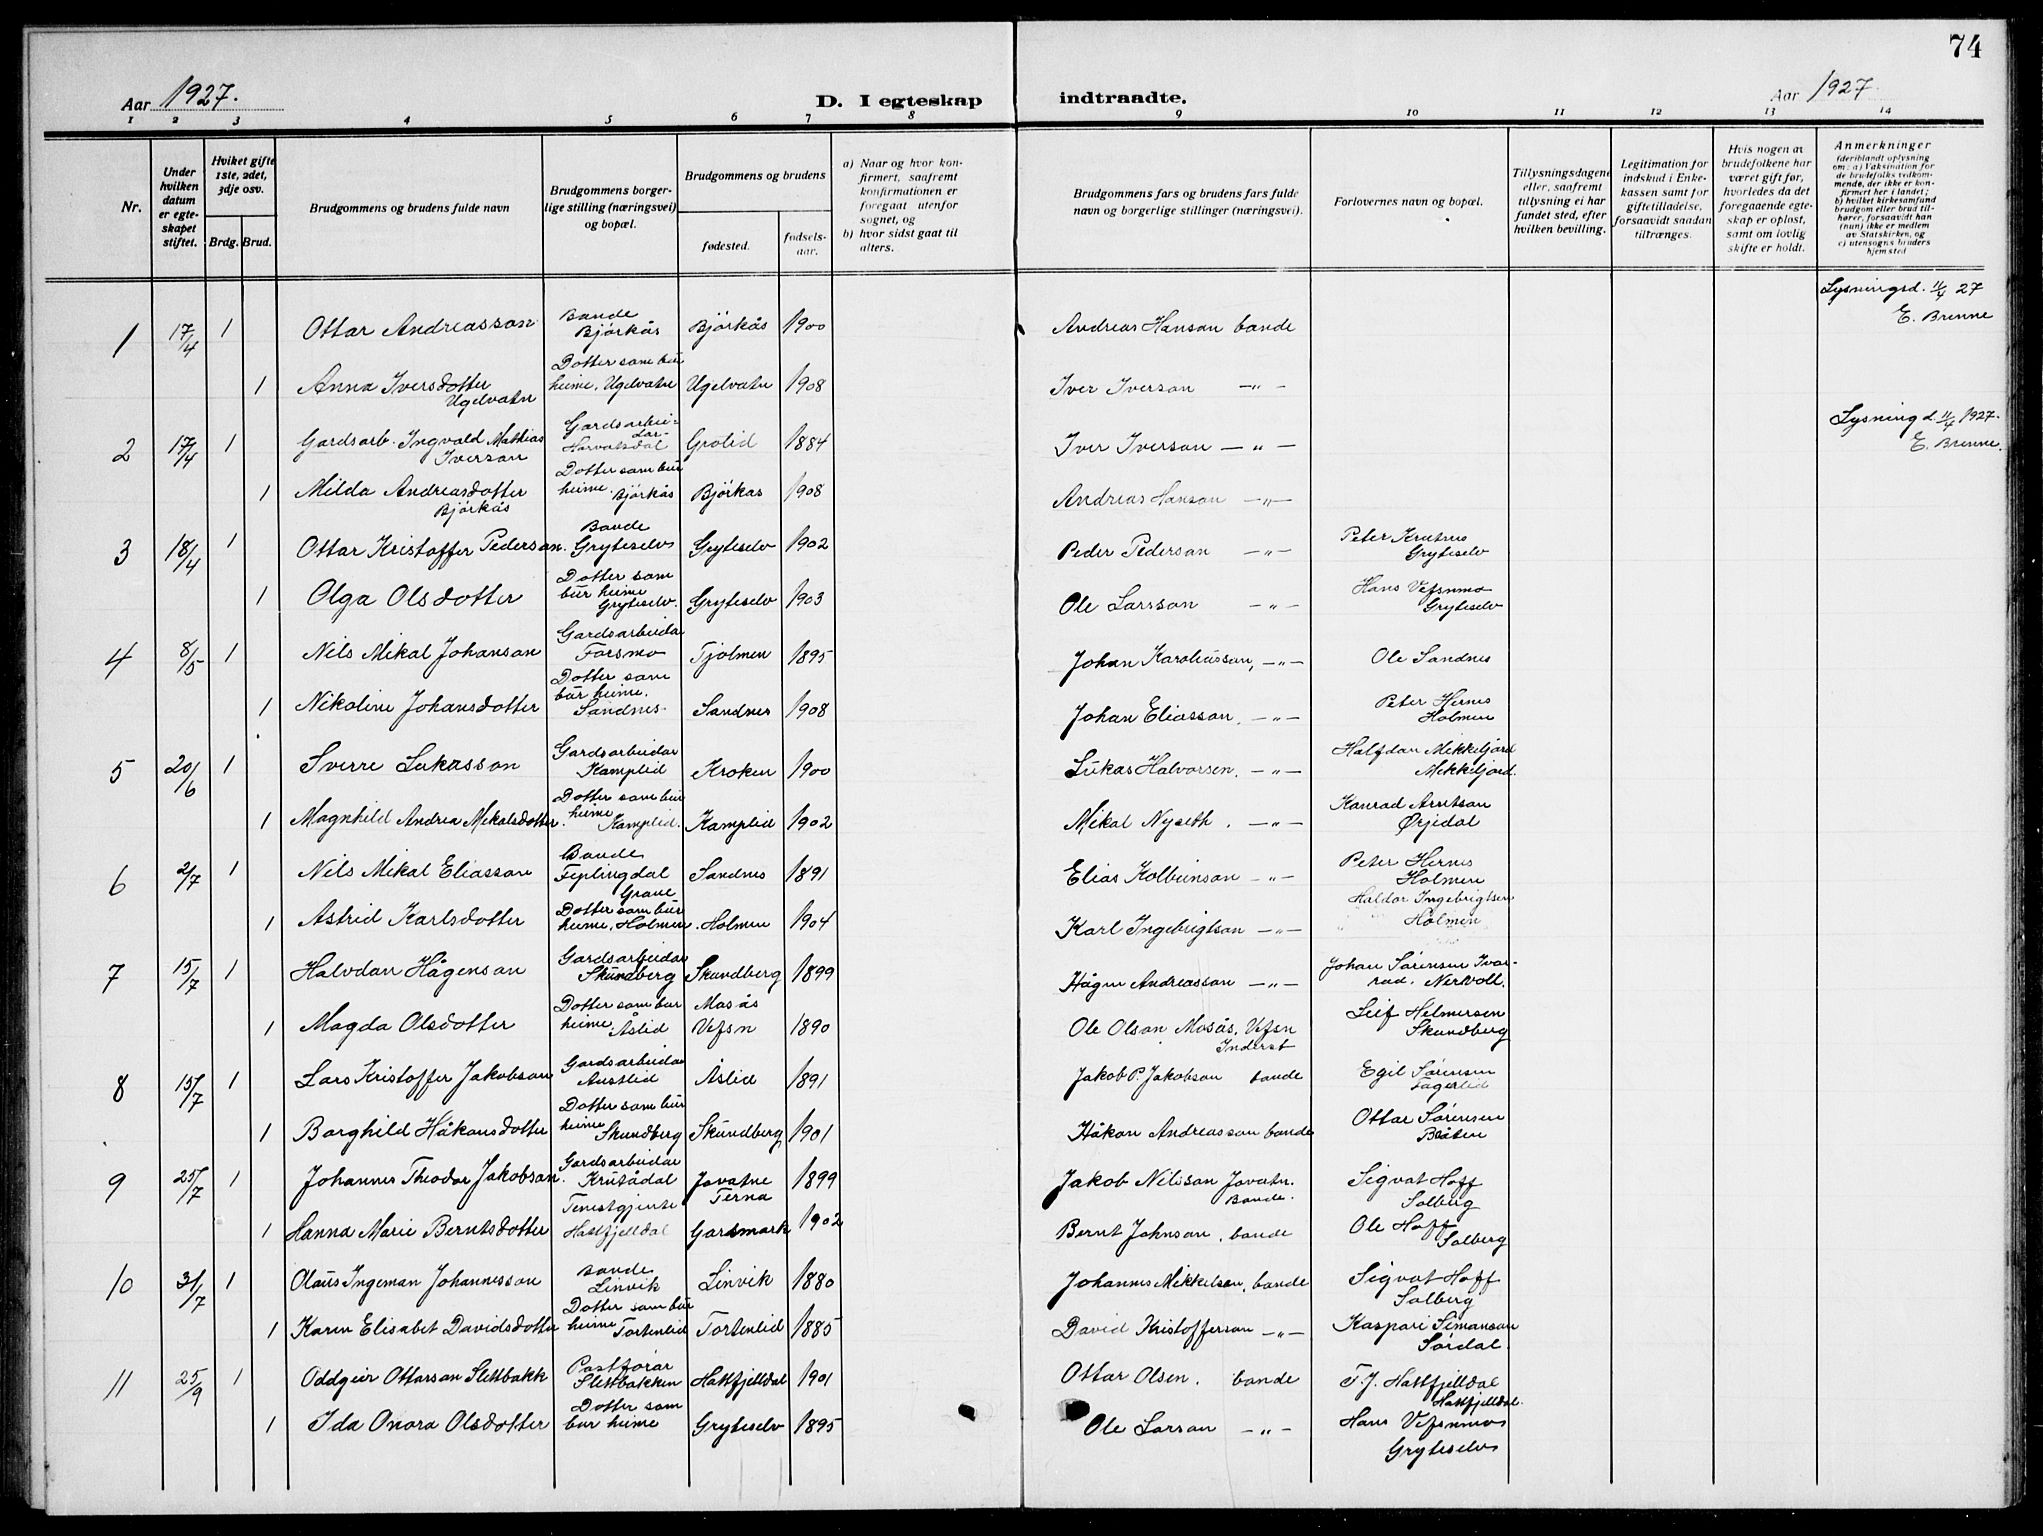 74
Aar 1927.
D. I egteskap indtraadte.
Aar 1927.
1 2 3 4 5 6 7 8 9 10 11 12 13 14
Nr.
Under hvilken datum er egteskapet stiftet.
Hviket gifte 1ste, 2det, 3dje osv.
Brdg. Brud.
Brudgommens og brudens fulde navn
Brudgommens borgerlige stilling (næringsvei) og bopæl.
Brudgommens og brudens
fødested.
fødselsaar.
a) Naar og hvor konfirmert, saafremt konfirmationen er foregaat utenfor sognet, og
b) hvor sidst gaat til alters.
Brudgommens fars og brudens fars fulde navn og borgerlige stillinger (næringsvei).
Forlovernes navn og bopæl.
Tillysningsdagene eller, saafremt tillysning ei har fundet sted, efter hvilken bevilling.
Legitimation for indskud i Enkekassen samt for giftetilladelse, forsaavidt saadan tiltrænges.
Hvis nogen av brudefolkene har været gift før, hvorledes da det foregaaende egteskap er opløst, samt om lovlig skifte er holdt.
Anmerkninger
(deriblandt oplysning om: a) Vaksination for de brudefolks vedkommende, der ikke er konfirmert her i landet;
b) hvilket kirkesamfund brudgom eller brud tilhører, forsaavidt han (hun) ikke er medlem av Statskirken, og
c) utensogns bruders hjemsted
1 17/4 1 Ottar Andreasson Bande Bjørkås Bjørkås 1900 Andreas Hanson bande Lysningsd. 11/4 27 E. Brenne
1 Anna Iversdotter Ugelvatn Dotter som bur heime, Ugelvatn Ugelvatn 1908 Iver Iverson —"—
2 17/4 1 Gardsarb. Ingvald Mathias Iverson Gardsarbeidar Harvatsdal Grolid 1884 Iver Iverson —"— Lysning d. 11/4 1927. E. Brenne.
1 Milda Andreasdotter Bjørkås Dotter som bur heime. Bjørkås Bjørkas 1908 Andreas Hanson —"—
3 18/4 1 Ottar Kristoffer Pederson. Bonde Gryteselv Gryteselv 1902 Peder Pederson —"— Peter Krutnes Gryteselv
1 Olga Olsdotter Dotter som bur heime Gryteselv. Gryteselv 1903 Ole Larsson —"— Hans Vefsnmo Gryteselv
4 8/5 1 Nils Mikal Johanson Gardsarbeidar Forsmo Tjolmen 1895 Johan Karoliusson, —"— Ole Sandnes
1 Nikoline Johansdotter Dotter som bur heime. Sandnes Sandnes 1908 Johan Eliasson. —"— Peter Hernes Holmen
5 20/6 1 Sverre Lukasson Gardsarbeidar Kamplid Kroken 1900 Lukas Halvorsen. —"— Halfdan Mikkeljord Mikkeljord.
1 Magnhild Andrea Mikalsdotter. Dotter som bur heime Kamplid. Kamplid 1902 Mikal Nyseth. —"— Konrad Arntson Ørjedal
6 2/7 1 Nils Mikal Eliasson Bande Fiplingdal Grane Sandnes 1891 Elias Kolbeinson —"— Peter Hernes Holmen
1 Astrid Karlsdotter Dotter som bur heime, Holmen. Holmen 1904 Karl Ingebrigtson —"— Haldor Ingebrigtsen Holmen
7 15/7 1 Halvdan Hågenson Gardsarbeidar Skundberg Skundberg 1899 Hågen Andreasson —"— Johan Sørensen Ivarrud. Nervoll.
1 Magda Olsdotter Dotter som bur heime, Åslid Mosås Vefsn 1890 Ole Olson Mosås, Vefsn Inderst Leif Helmersen Skundberg
8 15/7 1 Lars Kristoffer Jakobson Gardsarbeidar Austlid Åslid 1891 Jakob P. Jakobson bande Egil Sørensen Fagerlid
1 Borghild Håkonsdotter Dotter som bur heime Skundberg Skundberg 1901 Håkon Andreasson bande Ottar Sørensen Bråten
9 25/7 1 Johannes Theodor Jakobson. Gardsarbeidar Krutådal Jovatne Terna 1899 Jakob Nilsson Jovatn. Bande. Sigvat Hoff Solberg
1 Hanna Marie Berntsdotter Tenestgjente Hattfjelldal Garsmark 1902 Bernt Johnson, bande Ole Hoff Solberg
10 31/7 1 Olaus Ingeman Johannesson Bande Linvik Linvik 1880 Johannes Mikkelsen, bande Sigvat Hoff Solberg
1 Karen Elisabet Davidsdotter Dotter som bur heime Tortenlid Tortenlid 1885 David Kristofferson —"— Kaspari Simonson Sørdal.
11 25/9 1 Oddgeir Ottarson Slettbakk Postførar Slettbakken Hattfjelldal 1901 Ottar Olsen. bande T.J. Hattfjelldal Hattfjelldal.
1 Ida Onora Olsdotter Dotter som bur heime Gryteselv 1895 Ole Larson —"— Hans Vefsnmo Gryteselv